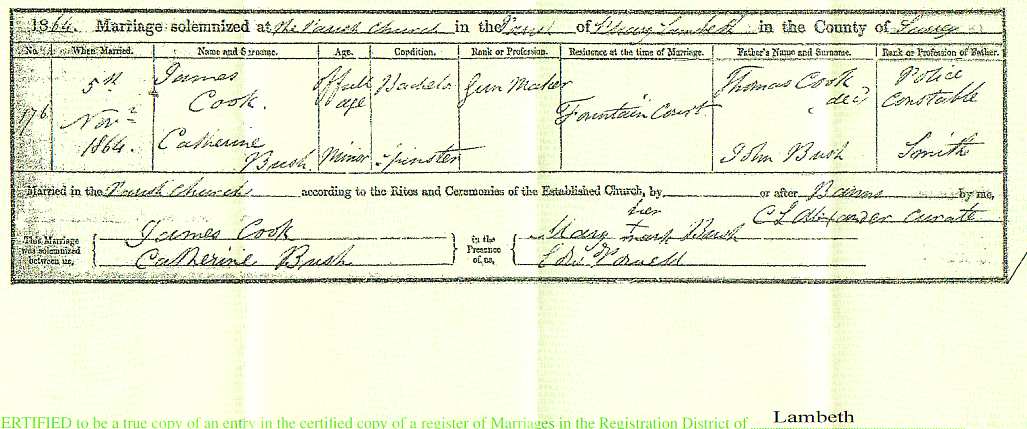 1864. Marriage solemnized at the Parish Church in the Parish of St Mary Lambeth in the County of Surrey
No. When Married. Name and Surname. Age. Condition. Rank or Profession. Residence at the time of Marriage. Father's Name and Surname. Rank or Profession of Father.
176 5th Novr 1864. James Cook. Of full age Bachelor Gun Maker Fountain Court. Thomas Cook decd Police Constable
Catherine Bush. Minor Spinster John Bush Smith
Married in the Parish Church according to the Rites and Ceremonies of the Established Church, by or after Banns by me,
curate
This Marriage was solemnized between us, James Cook Catherine Bush in the Presence of us, Mary Bush her mark Edw.
ERTIFIED to be a true copy of an entry in the certified copy of a register of Marriages in the Registration District of Lambeth